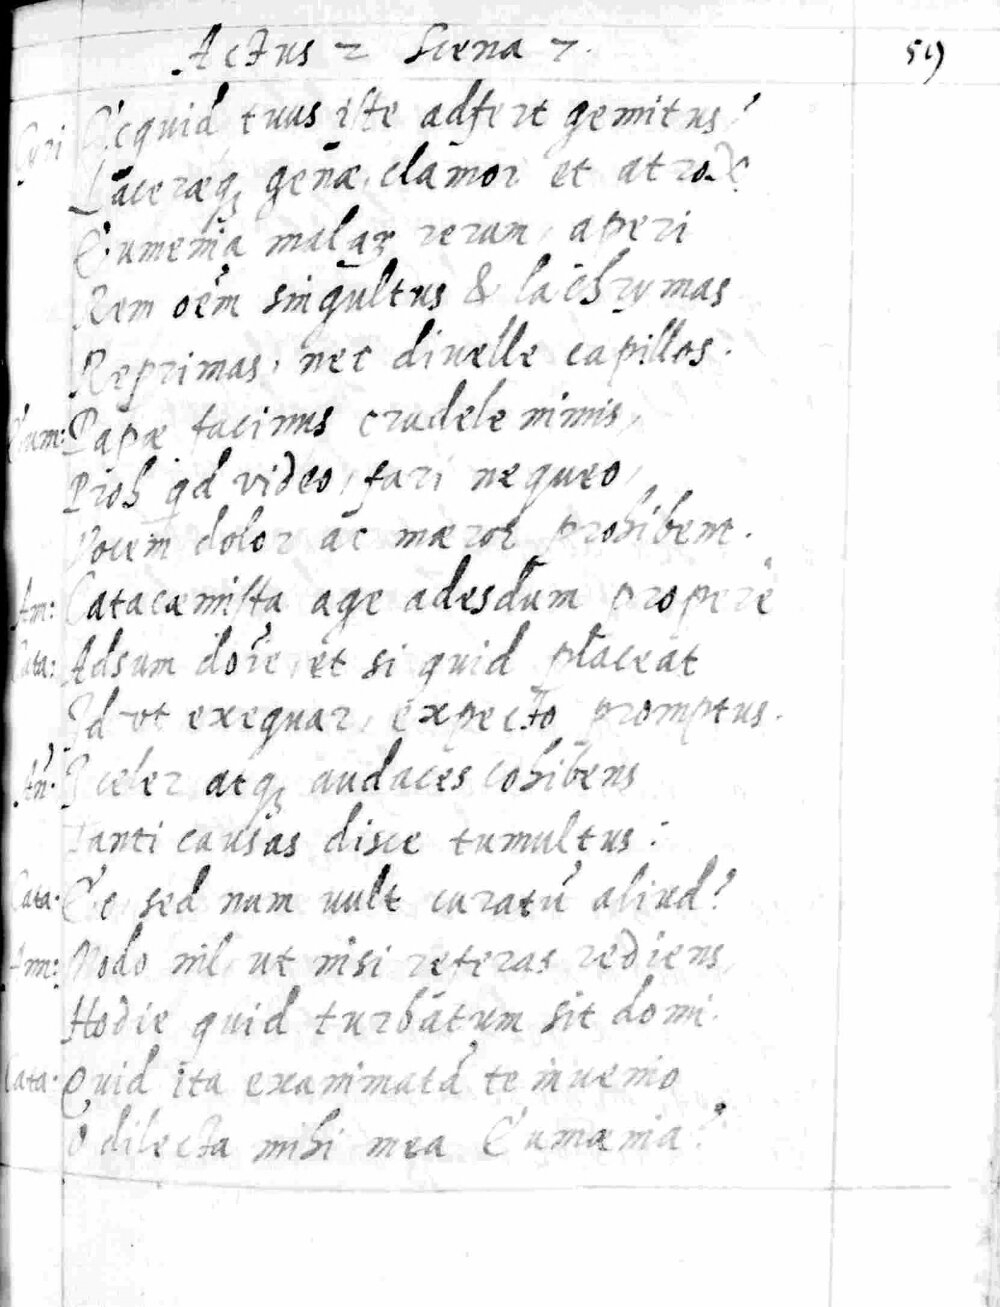 Actus 2 Scena 7. 59
Cyri Ecquid tuus iste adfert gemitus?
Laceræq; genæ, clamor et atrox?
Eumenia malaꝝ rerum, aperi
Rem oẽm singultus & lachrymas
Reprimas, nec diuelle capillos.
Eum: Papæ facinus crudele nimis,
Proh qd video, fari nequeo,
Vocem dolor ac mæror prohibent.
Am: Catacæmista age adesdum propere
Cata: Adsum et si quid placeat
Id vt exequar, expecto promptus.
An̄. I celer atq; audaces cohibens
Tanti causas disce tumultus.
Cata. Eo, sed num uult curatū aliud?
Ann: Modo nil, ut nisi reteras rediens,
Hodie quid turbatum sit domi.
Cata. Quid ita exanimatā te inuenio
O dilecta mihi mea Eumænia?